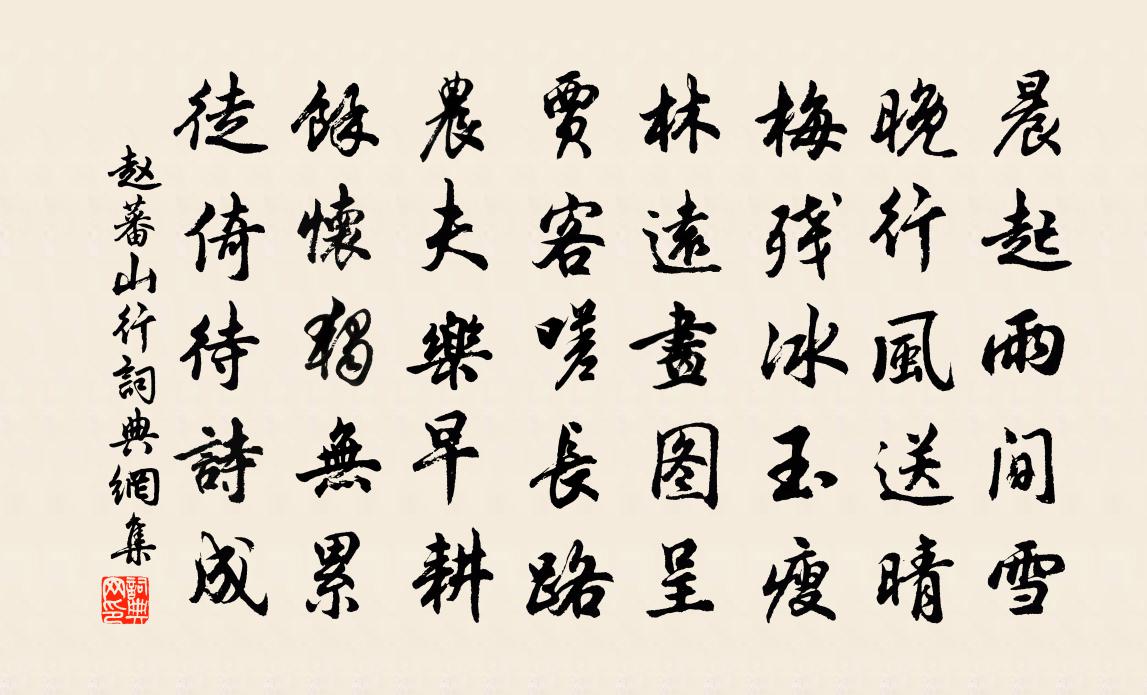 晨起雨间雪
晚行風送晴
梅残冰玉瘦
林遠畫图呈
賈客嗟長路
農夫樂早耕
餘懷獨無累
徒倚待詩成
赵蕃山行詞典網集
詞典網印